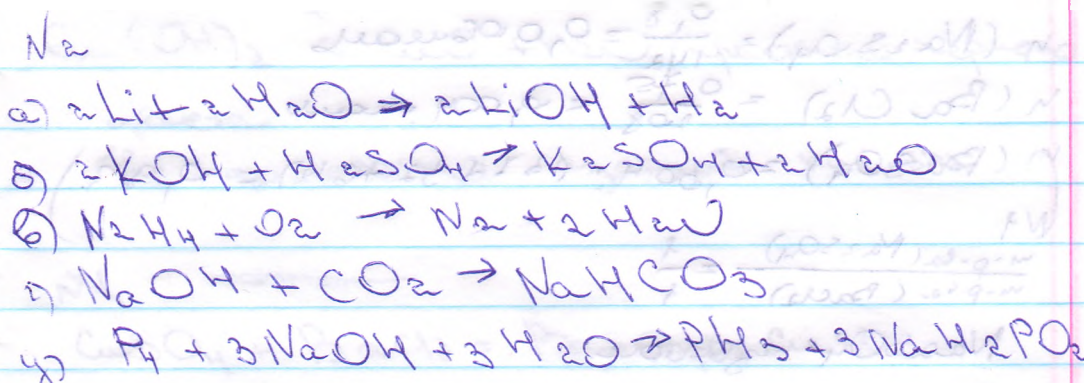 N2
а) 2Li + 2H2O → 2LiOH + H2
б) 2KOH + H2SO4 → K2SO4 + 2H2O
в) N2H4 + O2 → N2 + 2H2O
г) NaOH + CO2 → NaHCO3
д) P4 + 3NaOH + 3H2O → PH3 + 3NaH2PO2